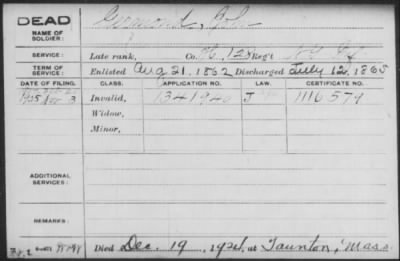 DEAD
NAME OF SOLDIER: Germond, John
SERVICE: Late rank, Co. 128 Reg't N.Y. Inf.
TERM OF SERVICE: Enlisted Aug 21, 1862 Discharged July 12, 1865
DATE OF FILING. CLASS. APPLICATION NO. LAW. CERTIFICATE NO.
1905 3 Invalid, 1341940 J 1116579
Widow,
Minor,
ADDITIONAL SERVICES:
REMARKS:
Died Dec. 19, 1924, at Taunton, Mass.